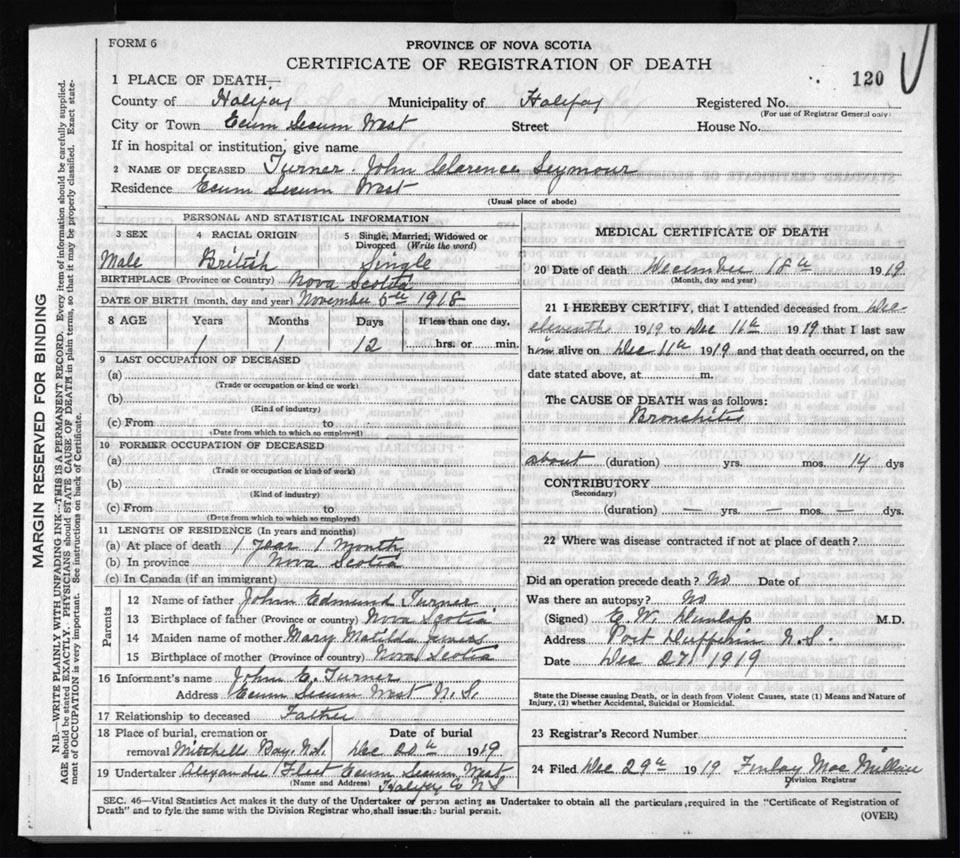 FORM 6
PROVINCE OF NOVA SCOTIA
CERTIFICATE OF REGISTRATION OF DEATH
120
1 PLACE OF DEATH—
County of Halifax Municipality of Halifax Registered No.
(For use of Registrar General only)
City or Town Ecum Secum West Street House No.
If in hospital or institution, give name
2 NAME OF DECEASED Turner. John Clarence Seymour
Residence Ecum Secum West
(Usual place of abode)
PERSONAL AND STATISTICAL INFORMATION
3 SEX 4 RACIAL ORIGIN 5 Single, Married, Widowed or
Divorced (Write the word)
Male British Single
BIRTHPLACE (Province or Country) Nova Scotia
DATE OF BIRTH (month, day and year) November 6th 1918
8 AGE Years Months Days If less than one day,
1 1 12 hrs. or min.
9 LAST OCCUPATION OF DECEASED
(a)
(Trade or occupation or kind or work)
(b)
(Kind of industry)
(c) From to
(Date from which to which so employed)
10 FORMER OCCUPATION OF DECEASED
(a)
(Trade or occupation or kind or work)
(b)
(Kind of industry)
(c) From to
(Date from which to which so employed)
11 LENGTH OF RESIDENCE (In years and months)
(a) At place of death 1 year 1 Month
(b) In province Nova Scotia
(c) In Canada (if an immigrant)
Parents
12 Name of father John Edmund Turner
13 Birthplace of father (Province or Country) Nova Scotia
14 Maiden name of mother Mary Matilda
15 Birthplace of mother (Province or country) Nova Scotia
16 Informant's name John E. Turner
Address Ecum Secum West N.S.
17 Relationship to deceased Father
18 Place of burial, cremation or Date of burial
removal Mitchell Bay. N.S. Dec 20th 1919
19 Undertaker Alexander Fleet Ecum Secum West.
(Name and Address) Halifax Co NS
MEDICAL CERTIFICATE OF DEATH
20 Date of death December 18th 1919
(Month, day and year)
21 I HEREBY CERTIFY, that I attended deceased from Dec
eleventh 1919 to Dec 11th 1919 that I last saw
him alive on Dec 11th 1919 and that death occurred, on the
date stated above, at m.
The CAUSE OF DEATH was as follows:
Bronchitis
about (duration) yrs. mos. 14 dys
CONTRIBUTORY
(Secondary)
(duration) — yrs. — mos. — dys.
22 Where was disease contracted if not at place of death?
Did an operation precede death? No Date of
Was there an autopsy? No
(Signed) E. W. Dunlap M.D.
Address Port Dufferin N.S.
Date Dec 27 1919
State the Disease causing Death, or in death from Violent Causes, state (1) Means and Nature of
Injury, (2) whether Accidental, Suicidal or Homicidal.
23 Registrar's Record Number
24 Filed Dec 29th 1919 Finlay
Division Registrar
SEC. 46—Vital Statistics Act makes it the duty of the Undertaker or person acting as Undertaker to obtain all the particulars required in the "Certificate of Registration of
Death" and to fyle the same with the Division Registrar who shall issue the burial permit.
(OVER)
MARGIN RESERVED FOR BINDING
N.B.—WRITE PLAINLY WITH UNFADING INK—THIS IS A PERMANENT RECORD. Every item of information should be carefully supplied.
AGE should be stated EXACTLY. PHYSICIANS should STATE CAUSE OF DEATH in plain terms, so that it may be properly classified. Exact state-
ment of OCCUPATION is very important. See instructions on back of Certificate.